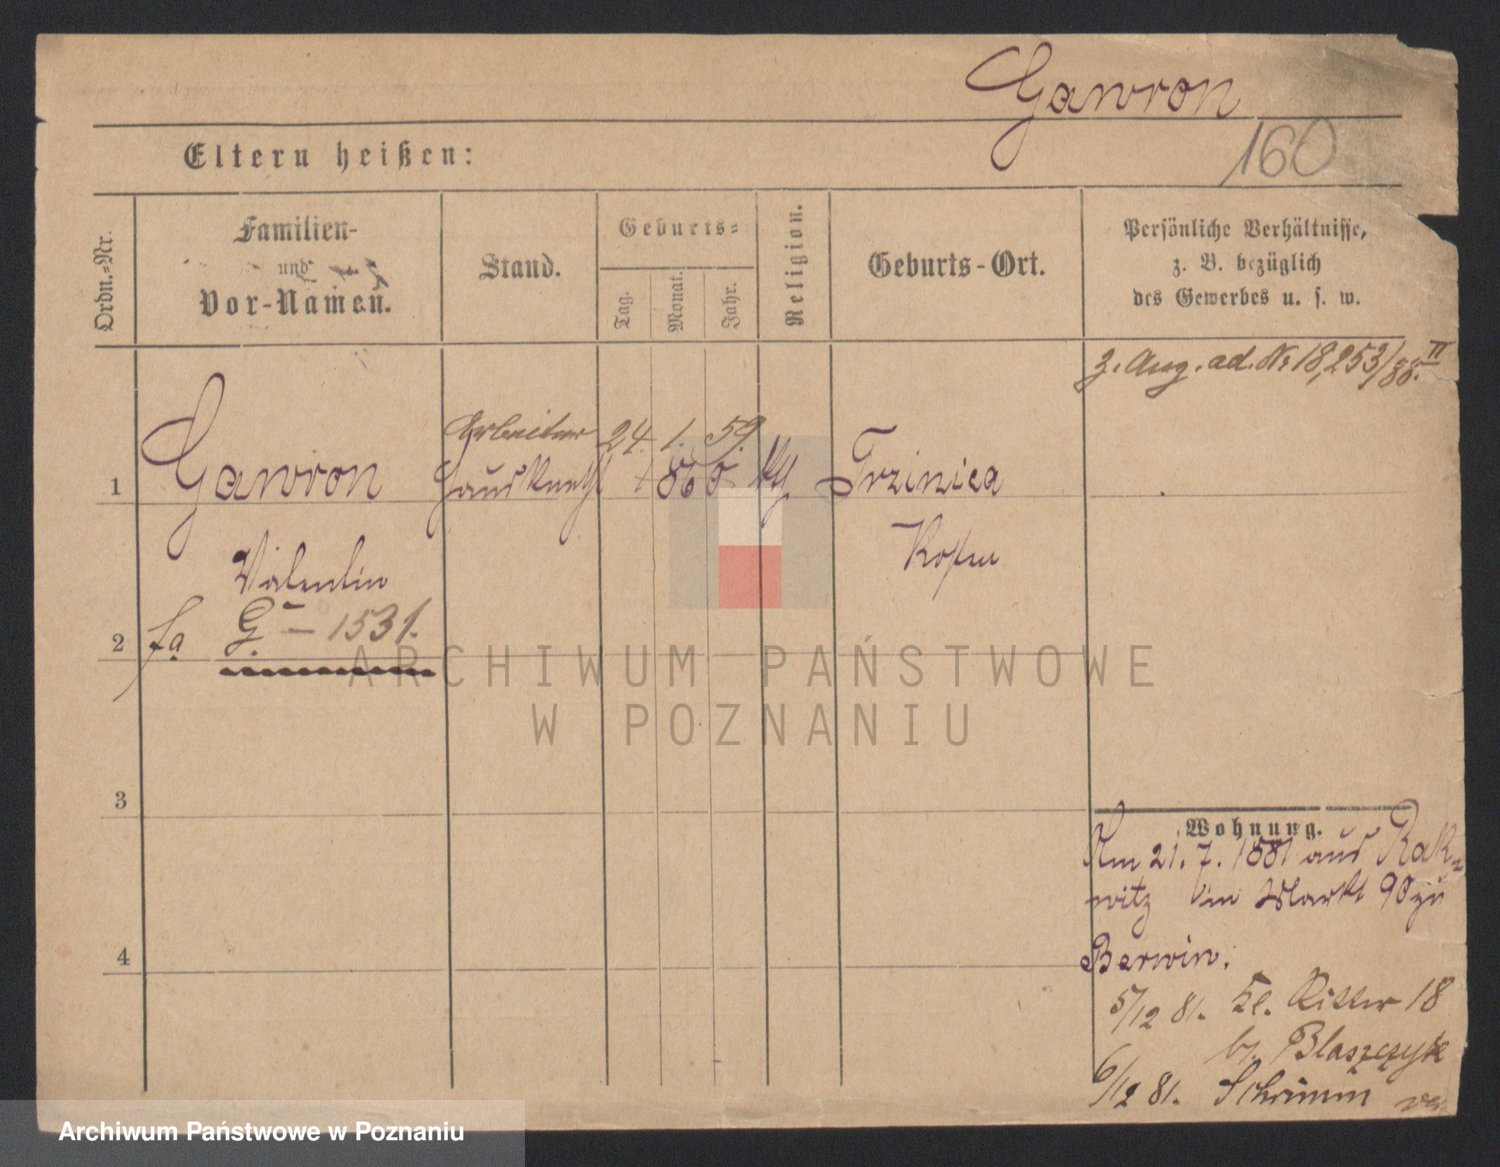 Gawron
160
Eltern heißen:
Ordn.-Nr.
Familien-
und
Vor-Namen.
Stand.
Geburts-
Tag.
Monat.
Jahr.
Religion.
Geburts-Ort.
Persönliche Verhältnisse,
z. B. bezüglich
des Gewerbes u. s. w.
z. Aug. ad. No 18,253/88. II
Arbeiter 24. 1. 59.
1 Gawron Hausknecht 1860 kth Trzinica
Valentin Kosten
2 fa G. — 1531.
3
4
Wohnung.
Am 21. 7. 1881 aus Rak-
witz in Markt 90 zu
Berwin.
5/12 81. Kl. Ritter 18
b. Blaszczyk
6/12 81. Schrimm
ARCHIWUM PAŃSTWOWE
W POZNANIU
Archiwum Państwowe w Poznaniu